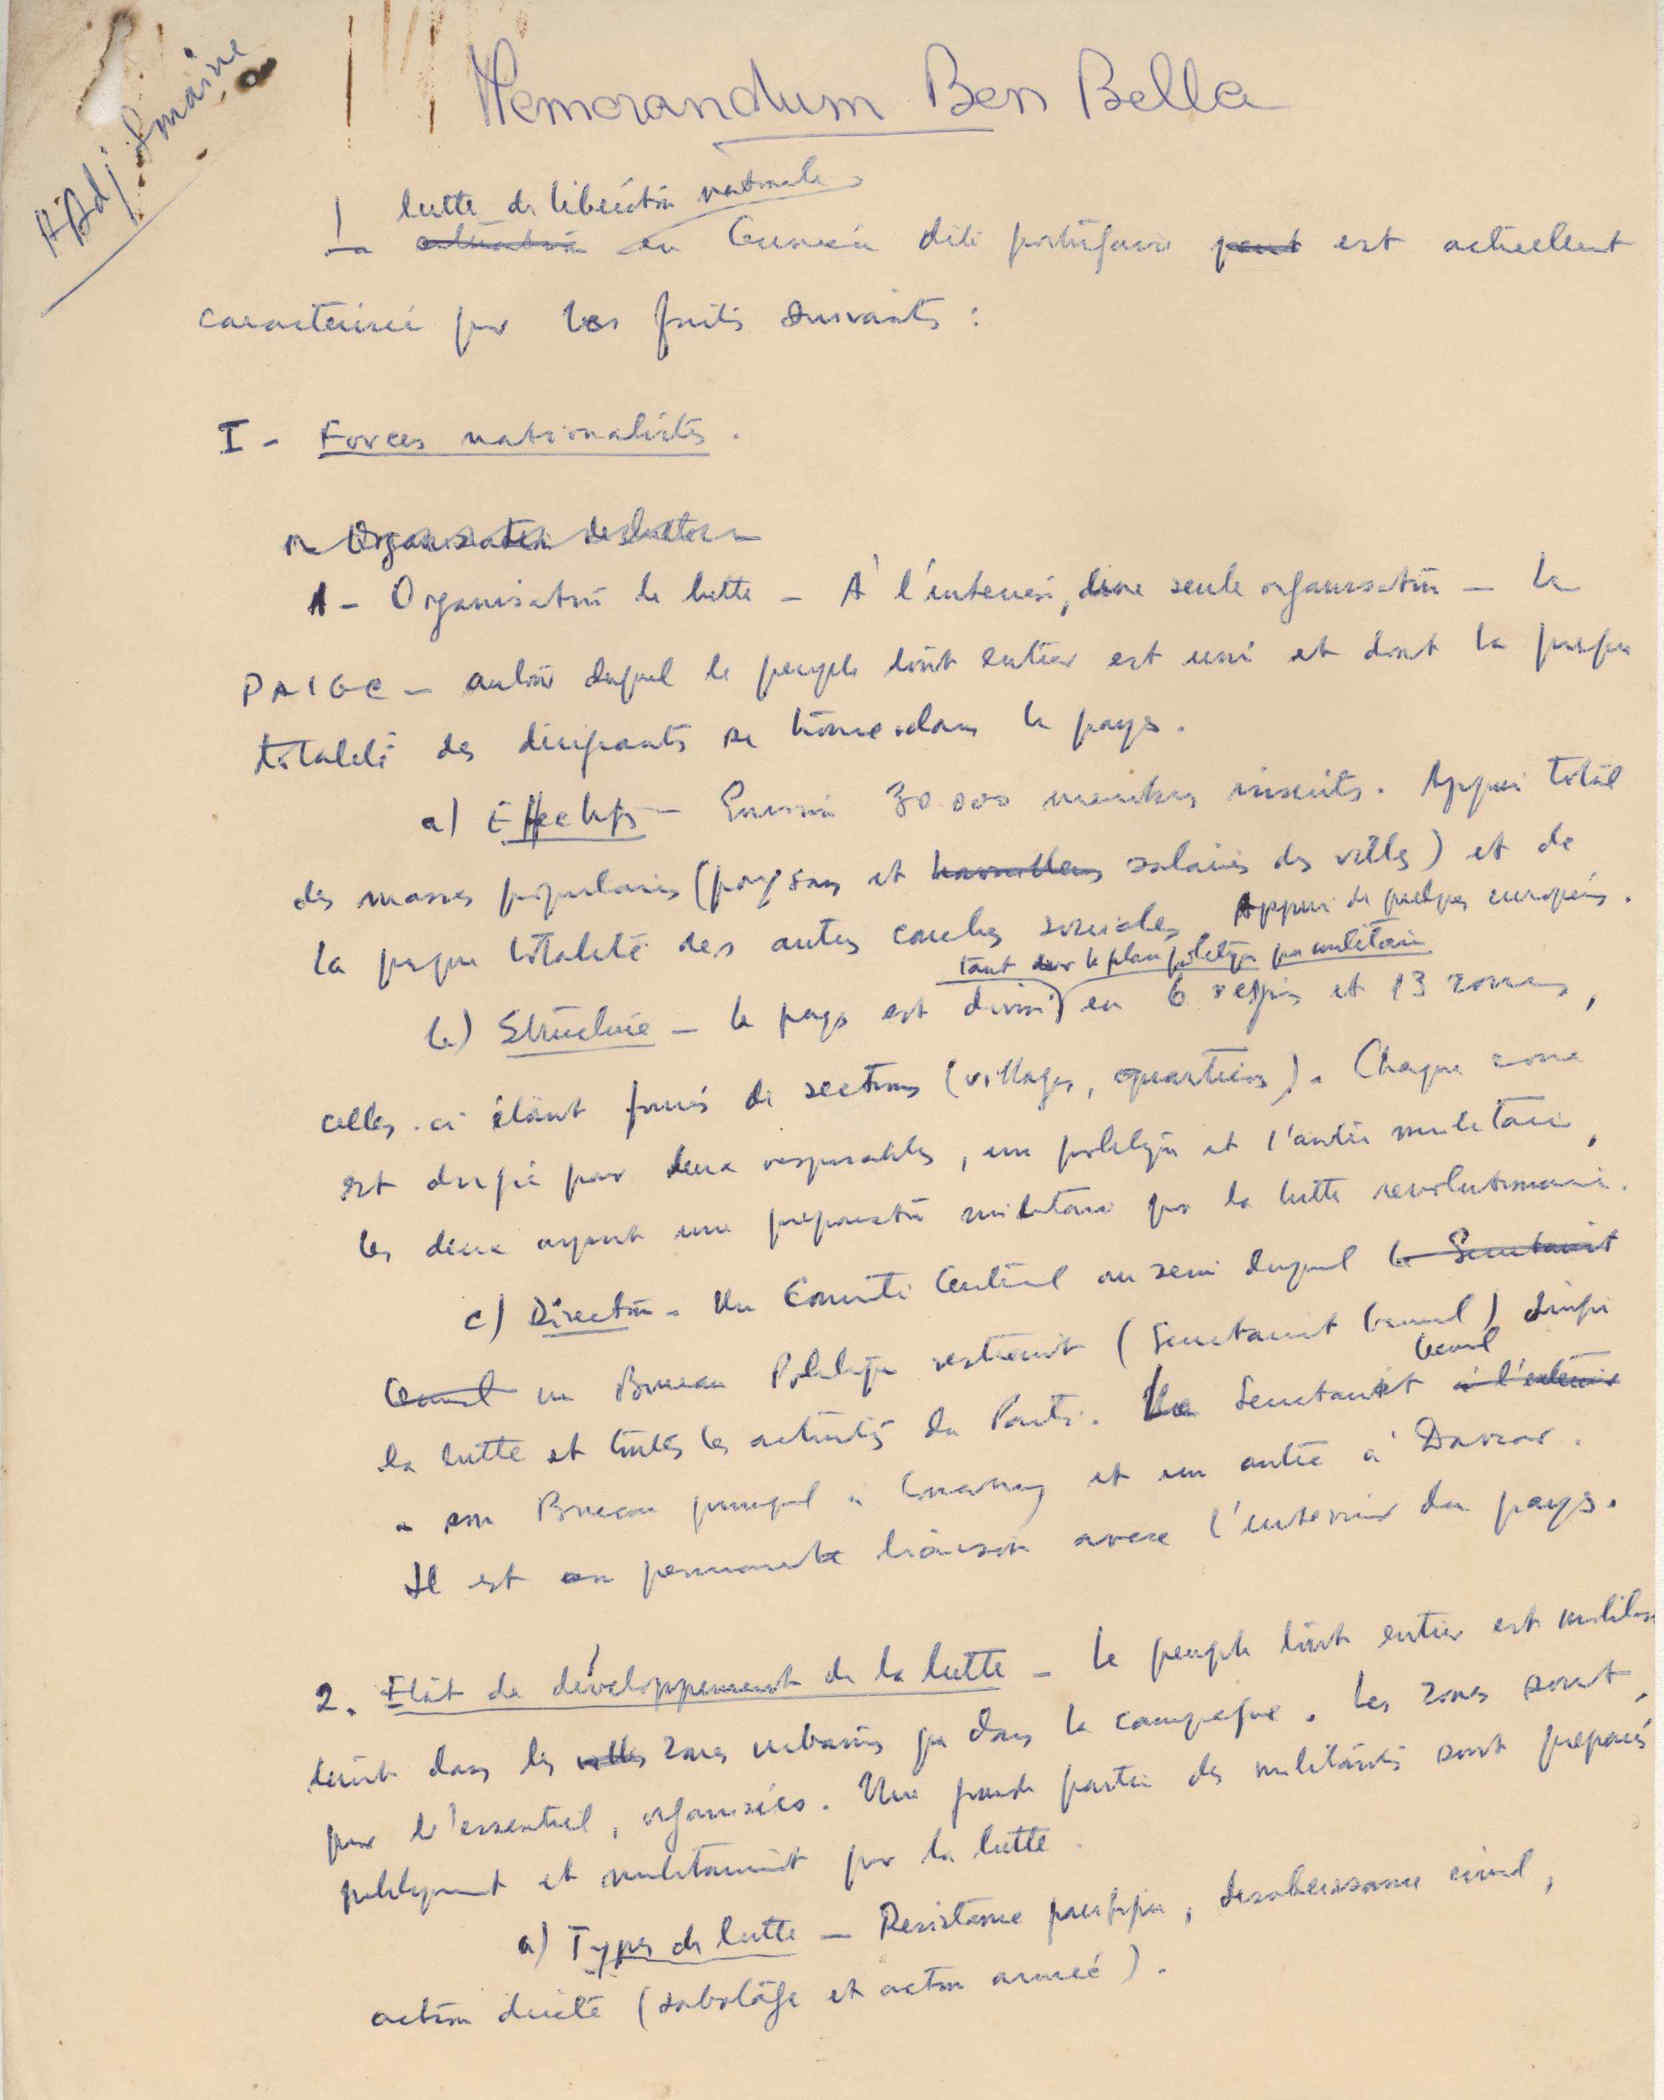 HAdj Smaïne
Memorandum Ben Bella
lutte de libération nationale
La situation en Guinée dite portugaise peut est actuellement
caractérisée par les faits suivants :
I - Forces nationalistes.
Organisation de lutte
1 - Organisation de lutte - À l'intérieur, une seule organisation - le
PAIGC - autour duquel le peuple tout entier est uni et dont la presque
totalité des dirigeants se trouve dans le pays.
a) Effectifs - Environ 30.000 membres inscrits. Appui total
des masses populaires (paysans et travailleurs salariés des villes) et de
la presque totalité des autres couches sociales. Appui de quelques européens.
tant sur le plan politique que militaire
b) Structure - le pays est divisé en 6 régions et 13 zones,
celles-ci étant formées de sections (villages, quartiers). Chaque zone
est dirigée par deux responsables, un politique et l'autre militaire,
les deux ayant une préparation militaire pour la lutte révolutionnaire.
c) Direction - Un Comité Central au sein duquel le Secrétariat
Général un Bureau Politique restreint (Secrétariat Général) dirige
la lutte et toutes les activités du Parti. Le Secrétariat à l'extérieur Général
a son Bureau principal à Conakry et un autre à Dakar.
Il est en permanente liaison avec l'intérieur du pays.
2. Etat de développement de la lutte - Le peuple tout entier est mobilisé
tant dans les villes zones urbaines que dans la campagne. Les zones sont,
pour l'essentiel, organisées. Une grande partie des militants sont préparés
politiquement et militairement pour la lutte.
a) Types de lutte - Résistance pacifique, désobéissance civil,
action directe (sabotage et action armée).